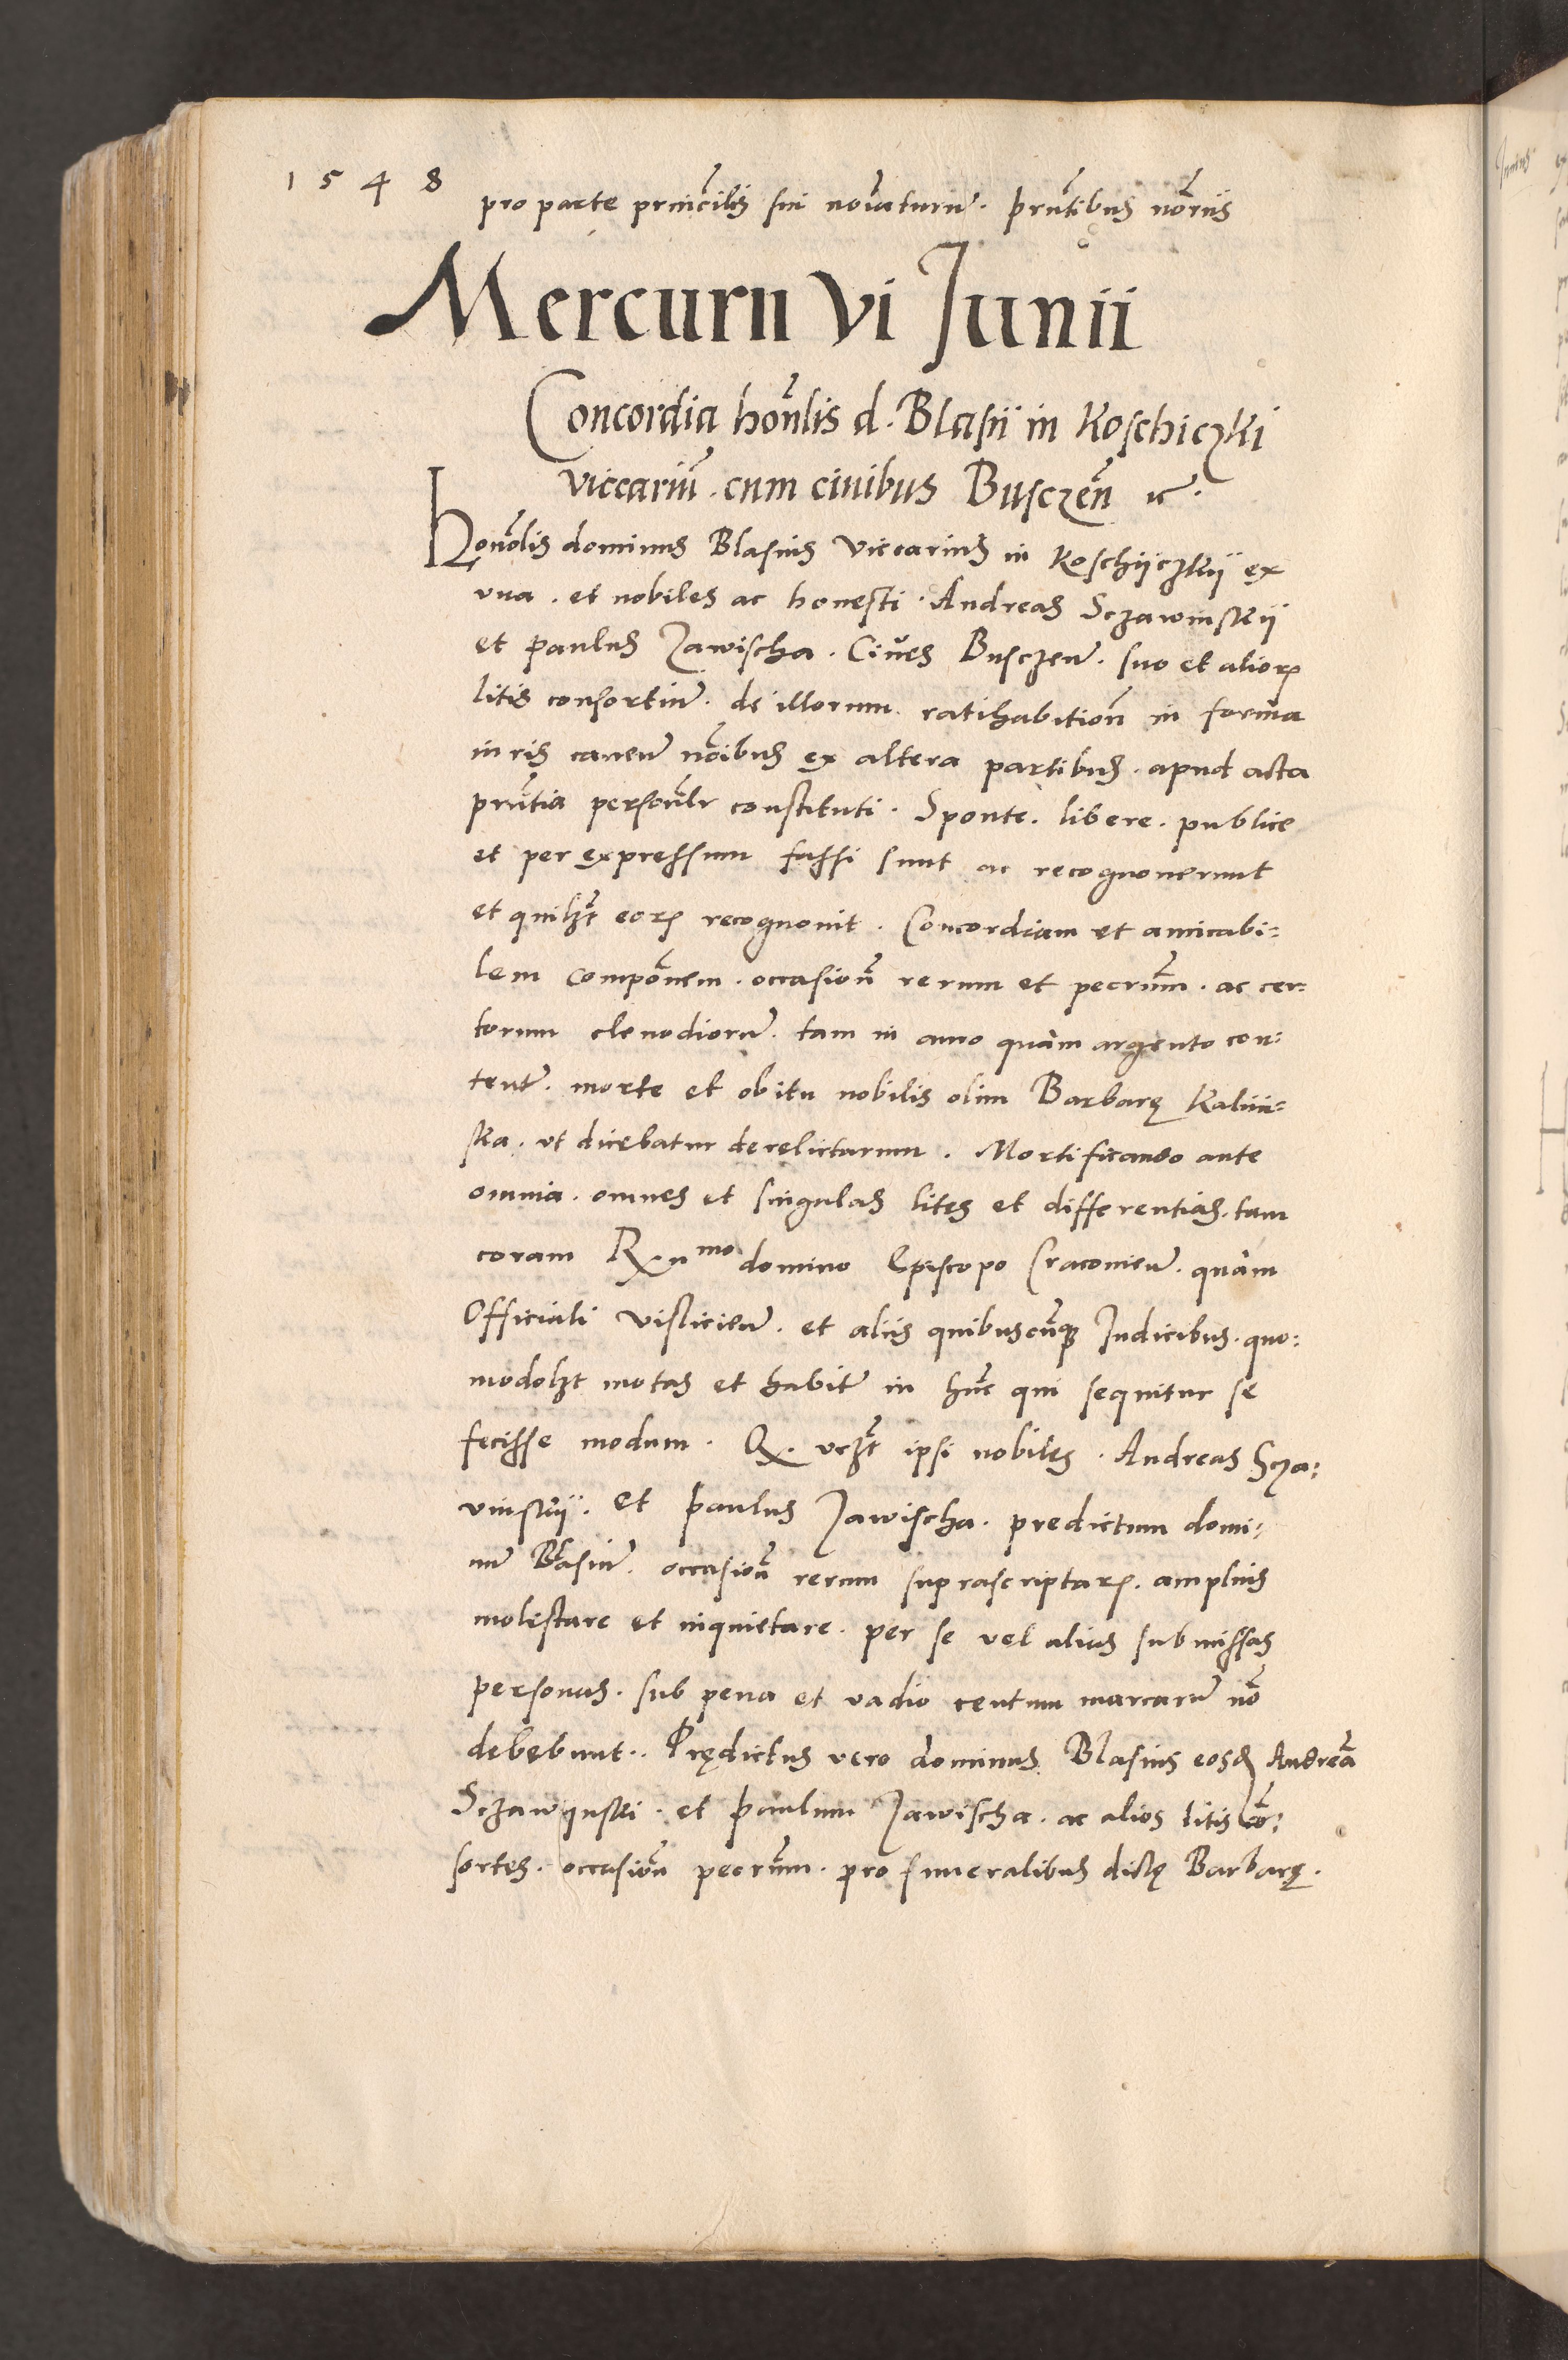 1548
pro parte princ̄ilis sui nōīaturum̄. prn̄tibus nōriis
Mercurii vi Junii
Concordia hon̄lis d. Blasii in Koschiczki
viccarīū. cum ciuibus Busczen̄ ꝛc.
honōlis dominus Blasius viccarius in Koschijczkij ex
vna. et nobiles ac honesti. Andreas Sczawinskij
et paulus Jawischa. Ciues Busczen̄. suo et alioꝝ
litis consortiū. de illorum ratihabitiōn̄ in forma
iuris cauen̄ nōībus ex altera partibus. apud acta
prn̄tia personlr̄ constituti. Sponte. libere. publice
et per expressum fassi sunt ac recognouerunt
et quilꝫt eoꝝ recognouit. Concordiam et amicabi:
lem compōnem. occasiōn̄ rerum et pecrūm. ac cer:
torum clenodiorū. tam in auro quam argento con:
tent̄. morte et obitu nobilis olim Barbarę Kalin:
ska. vt dicebatur derelictarum. Mortificando ante
omnia. omnes et singulas lites et differentias. tam
coram R.n mo domino Episcopo Cracouien̄. quam
Officiali visliciēn̄. et aliis quibuscūqꝫ Iudicibus. quo:
modolꝫt motas et habit̄ in hūc qui sequitur se
fecisse modum. Q. vcꝫt ipsi nobiles. Andreas Scza:
vinskij. et paulus Jawischa. predictum domi:
nū Blasiū. occasiōn̄ rerum suprascriptaꝝ. amplius
molestare et inquietare. per se vel alias submissas
personas. sub pena et vadio centum marcarū nō
debebunt. Prędictus vero dominus Blasius eosꝺ Andreā
Sczawynski. et paulum Jawischa. ac alios litis cō:
sortes. occasiōn̄ pecrūm. pro funeralibus dictę Barbarę.